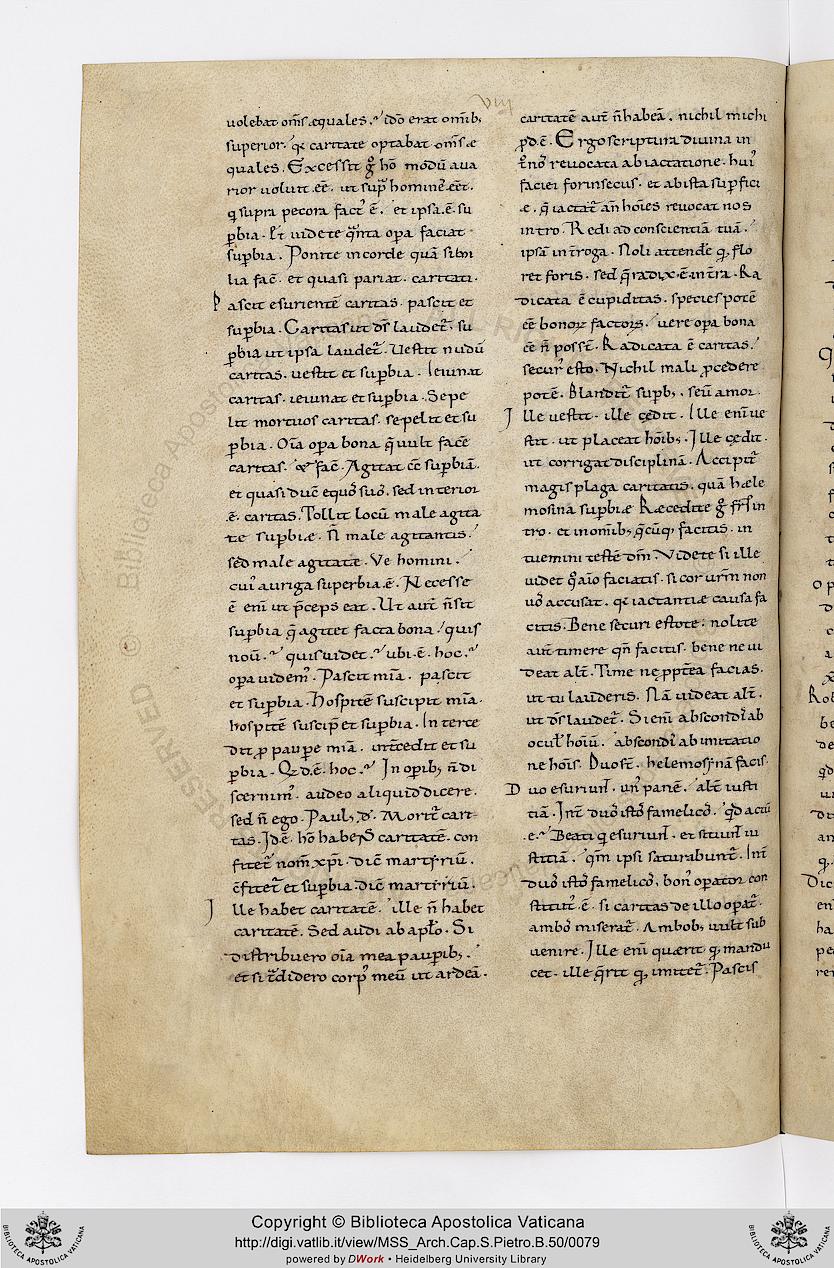 viii
uolebat om̄s æquales. ideo erat omnib;
superior. q̄ caritate optabat om̄s æ
quales. Excessit g̊ hō modū aua
rior uoluit .eē. ut sup̄ hominē eēt.
q̄ supra pecora fact᾿ ē. et ipsa .ē. su
ꝑbia. Et uidete q̄nta oꝑa faciat
suꝑbia. Ponite in corde quā simi
lia fac̄. et quasi pariat. caritati.
Pascit esurientē caritas. pascit et
suꝑbia. Caritas ut d̄s laudet᾿. su
ꝑbia ut ipsa laudet᾿. Uestit nudū
caritas. uestit et suꝑbia. Ieiunat
caritas. ieiunat et suꝑbia. Sepe
lit mortuos caritas. sepelit et su
ꝑbia. Om̄ia oꝑa bona q̄ uult facē
caritas. & fac̄. Agitat cē suꝑbiā.
et quasi ducē equo᾿ suo᾿. sed interior
.ē. caritas. Tollit locū male agita
te suꝑbiæ. N̄ male agitantis.
sed male agitatæ. Ve homini.
cui᾿ auriga superbia .ē. Necesse
ē eni᾿ ut p̄ceps eat. Ut aut̄ n̄ sit
suꝑbia q̄ agitet facta bona. quis
nou̅. quis uidet. ubi .ē. hoc.
oꝑa uidem᾿. Pascit mīa. pascit
et suꝑbia. Hospitē suscipit mīa.
hospitē suscip̄ et suꝑbia. Interce
dit ꝓ pauꝑe mīa. int̄cedit et su
ꝑbia. Qd .ē. hoc. In oꝑib; n̄ di
scernim᾿. audeo aliquid dicere.
sed n̄ ego. Paul᾿ .d᾿. Morit᾿ cari
tas. Id .ē. hō habens caritatē. con
fitet᾿ nom̄ xp̄i. dic̄ martyriū.
c̄fitet᾿ et suꝑbia. dic̄ martyriū.
Ille habet caritatē. ille n̄ habet
caritatē. Sed audi ab apl̄o. Si
distribuero om̄ia mea pauꝑib;
et si t᾿didero corp᾿ meū ut ardeā.
caritatē aut̄ n̄ habeā. nichil michi
ꝓd .ē. Ergo scriptura diuina in
t᾿no᾿ reuocata ab iactatione. hui᾿
faciei forinsecus. et ab ista suꝑfici
e. q̄ iactat᾿ an̄ hoīes reuocat nos
intro. Redi ad conscientiā tuā.
ipsā int᾿roga. Noli attendē q̄ flo
ret foris. sed q̄ radix .ē. in t᾿ra. Ra
dicata ē cupiditas. species potē
eē bonoꝝ factoꝝ. uere oꝑa bona
eē n̄ possē. Radicata ē caritas.
secur᾿ esto. Nichil mali ꝓcedere
potē. Blandit᾿ suꝑb; seuū amor.
Ille uestit. ille cedit. Ille eni᾿ ue
stit. ut placeat hoīb;. Ille cedit.
ut corrigat disciplinā. Accipit᾿
magis plaga caritatis. quā hæle
mosina suꝑbiæ. Ræcedite g̊ fr̄s in
tro. et in om̄ib; q̄cūq᾿ facitis. in
tuemini testē dm̄. Videte si ille
uidet q̊ aīo faciatis. si cor ur̄m non
uo᾿ accusat. q̄ iactantiæ causa fa
citis. Bene securi estote. nolite
aut̄ timere qn̄ facitis. bene ne ui
deat alt᾿. Time ne ꝓpt᾿ea facias.
ut tu lauderis. Nā uideat alt᾿.
ut d̄s laudet᾿. Si eni᾿ abscondi᾿ ab
ocul᾿ hoīū. abscondi᾿ ab imitatio
ne hoīs. Duo st̄. helemosynā facis.
Duo esuriunt. un᾿ panē. alt᾿ iusti
tiā. Int᾿ duo᾿ isto᾿ famelico᾿. qd actū
.e. Beati q̄ esuriunt. et sitiunt iu
stitiā. qm̄ ipsi saturabunt᾿. Int᾿
duo᾿ isto᾿ famelico᾿. bon᾿ operator con
stitut᾿ .ē. si caritas de illo oꝑat᾿.
ambo᾿ miserat᾿. Ambob; uult sub
uenire. Ille eni᾿ quærit q̄ mandu
cet. ille q̄rit q̄ imitet᾿. Pascis
Copyright © Biblioteca Apostolica Vaticana
http://digi.vatlib.it/view/MSS_Arch.Cap.S.Pietro.B.50/0079
powered by DWork • Heidelberg University Library